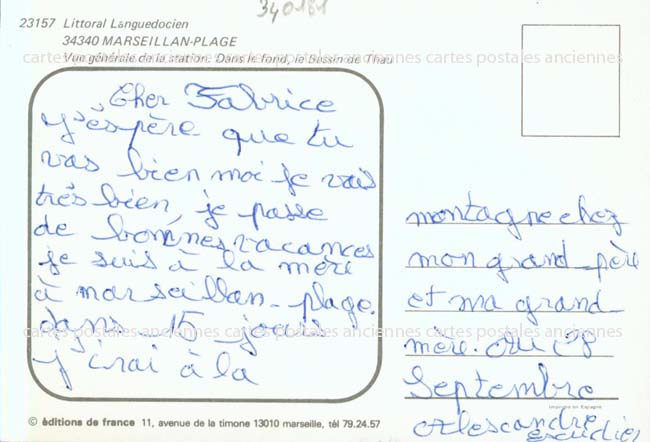 340181
23157 Littoral Languedocien
34340 MARSEILLAN-PLAGE
cartes postales anciennes cartes postales anciennes cartes postales anciennes
Vue générale de la station. Dans le fond, le Bassin de Thau
Cher Fabrice
j'éspère que tu
vas bien moi je vais
très bien, je passe
de bonnes vacances
je suis à la mère
à marseillan-plage.
dans 15 jours
cartes postales anciennes cartes postales anciennes cartes postales anciennes
j'irai à la
montagne chez
mon grand-père
et ma grand-
mère.
Septembre
Alescandre
escudier
Imprimé en Espagne
© éditions de france 11, avenue de la timone 13010 marseille, tél 79.24.57